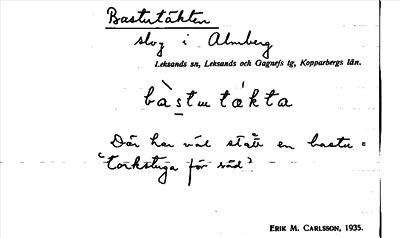 Bastutäkten
slog i Almberg
Leksands sn, Leksands och Gagnefs tg, Kopparbergs län.
bàstu tákta
Där har väl stått en bastu =
"torkstuga för säd"
ERIK M. CARLSSON, 1935.